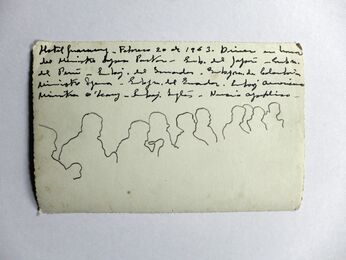 Hotel Guarany - Febrero 20 de 1963. Dinner en honor
del Ministro Pastor - Emb. del Japón - Emb.
del Perú - Embaj. del Ecuador -
Ministro - Embaj. del Ecuador. Embaj americano
Ministro O'Leary - Embaj. Inglés - Nuncio apostólico -